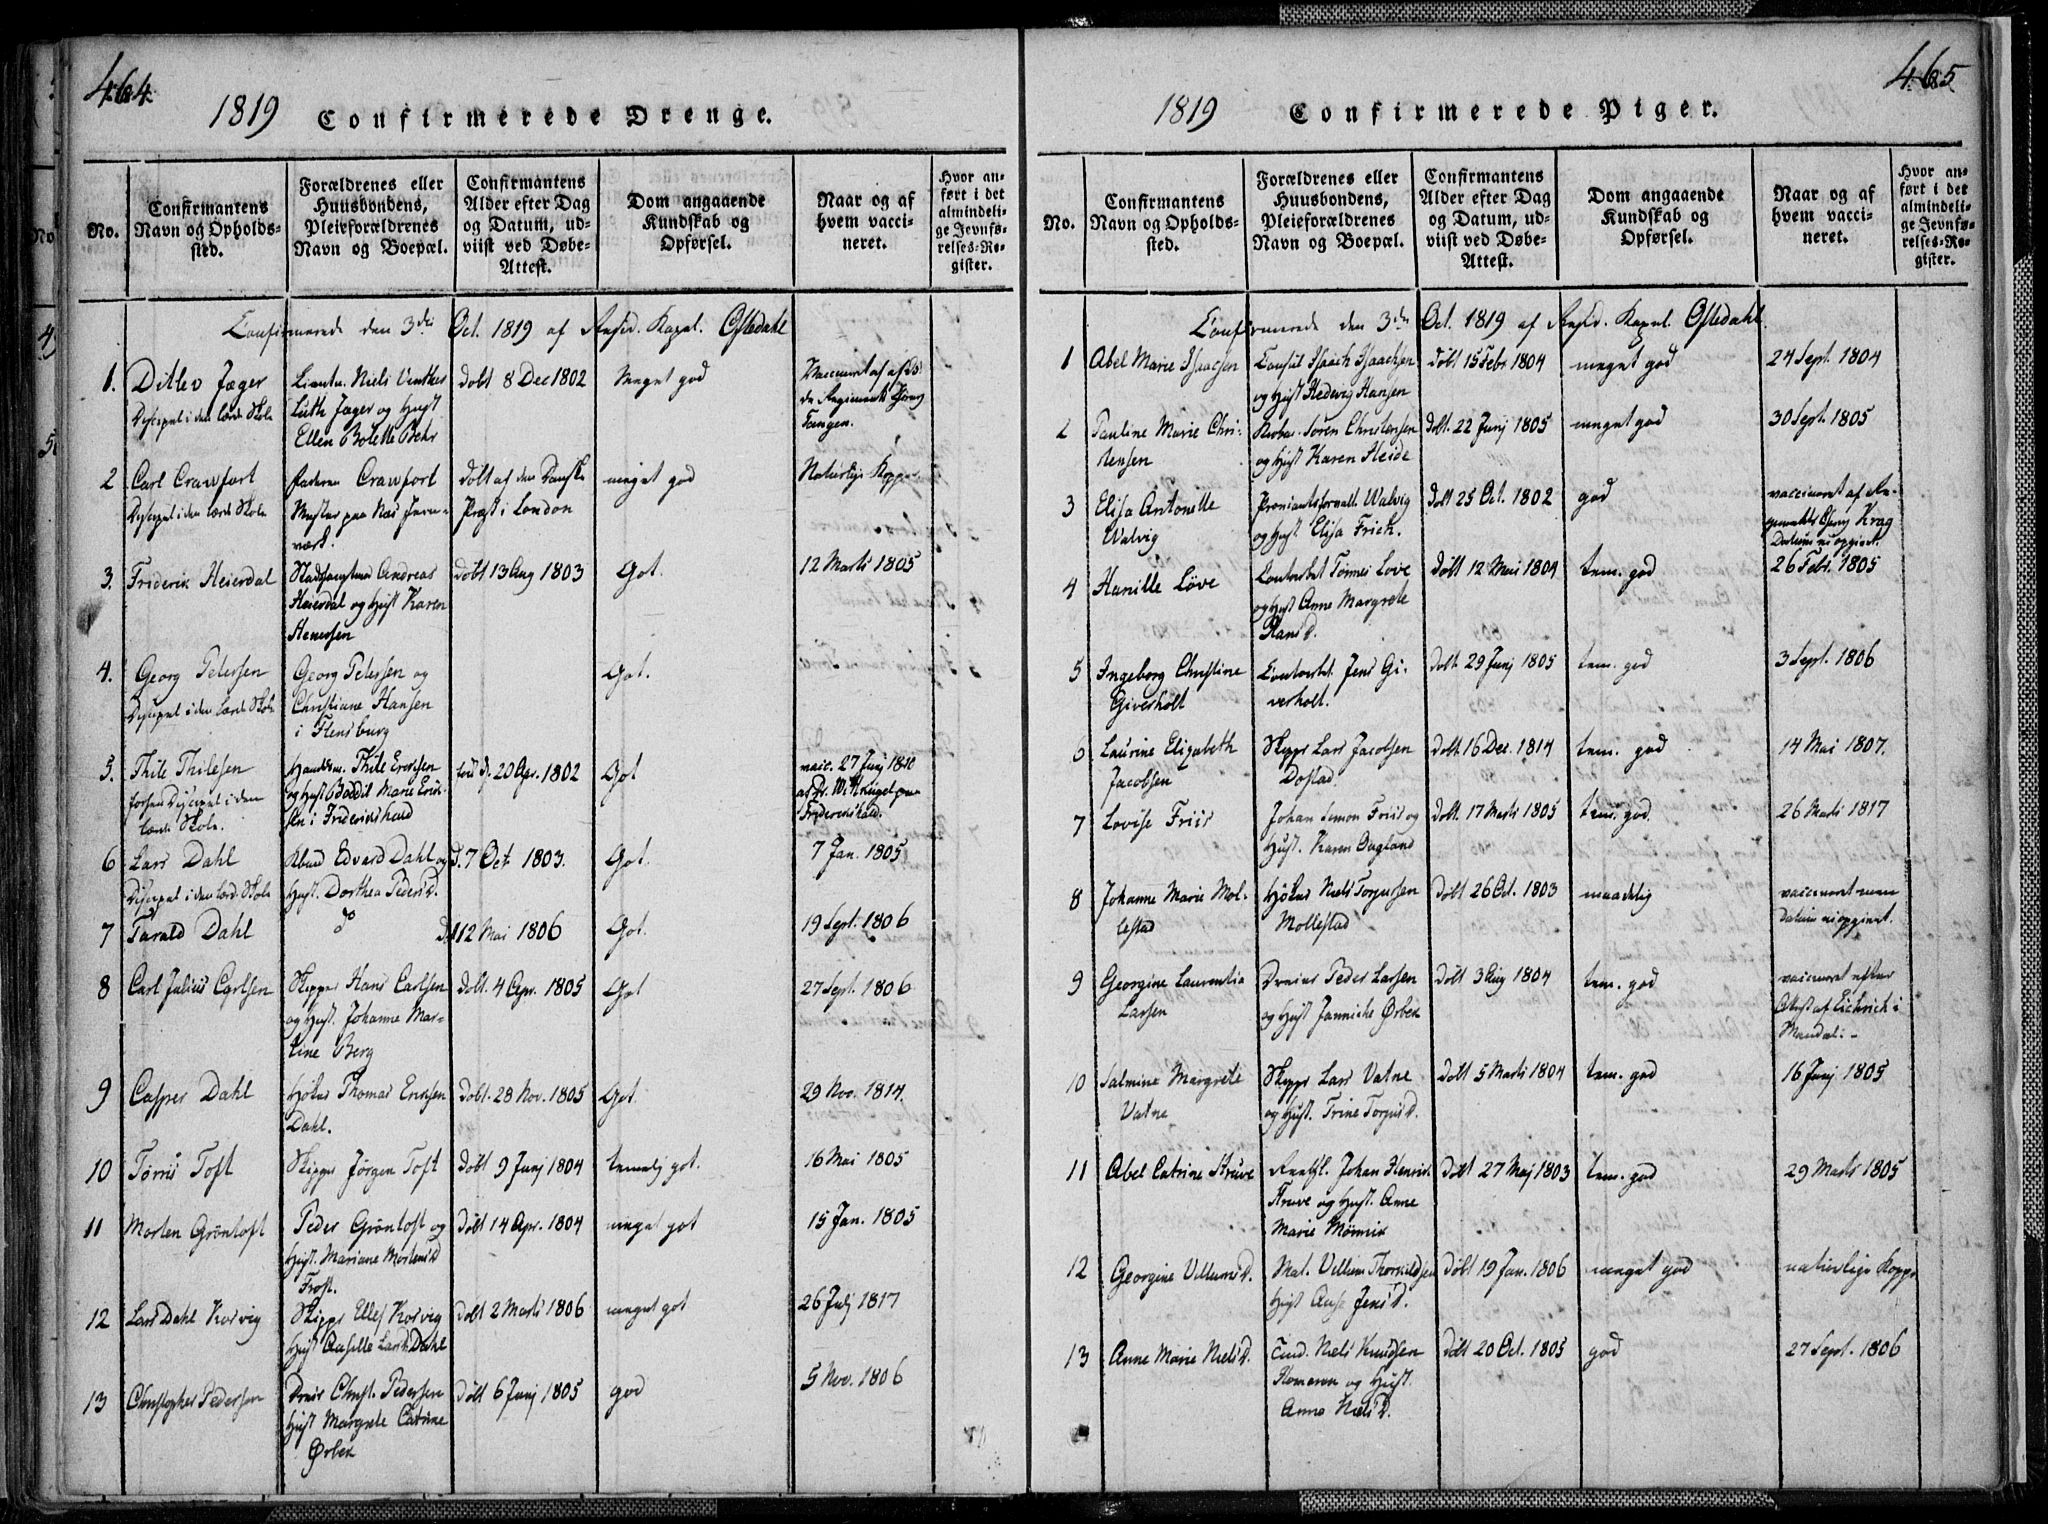 464
1819 Confirmerede Drenge.
No.
Confirmantens Navn og Opholds-sted.
Forældrenes eller Huusbondens, Pleieforældrenes Navn og Boepæl.
Confirmantens Alder efter Dag og Datum, ud-viist ved Døbe-Attest.
Dom angaaende Kundskab og Opførsel.
Naar og af hvem vacci-neret.
Hvor an-ført i det almindeli-ge Jevnfø-relses-Re-gister.
Confirmerede den 3die Oct. 1819 af Resid. Kapel. Oftedahl
1. Ditlev Jæger
Discipel i den lærde Skole
Lieutn. Niels
Luth Jæger og Hust
Ellen Bolette Behr
døbt 8 Dec 1802
Meget god
2 Carl Crawfort
Discipel i den lærde Skole
faderen Crawfort
Mester paa Næs Jern-
værk.
døbt af den Danske
Præst i London
meget god
Naturlige Kopper
3. Friderik Heierdal
Andreas
Heierdal og Hust Karen
døbt 13 Aug 1803
Got.
12 Marti 1805
4. Georg Petersen
Discipel i den lærde Skole
Georg Petersen og
Christiane Hansen
i Flensburg
Got.
5. Thile Thilesen
forhen Discipel i den
lærde Skole.
Thile Ericsen
og Hust Boddil Marie Eric-
sen i Friderikshald
20 Apr. 1802
Got
vacc. 27 Junj 1810
af Dr. W. paa
Friderikshald.
6 Lars Dahl
Discipel i den lærde Skole
Edvard Dahl og
Hust. Dorthea Peders D.
d. 7 Oct. 1803.
Got.
7 Jan. 1805
7 Tarald Dahl
do
Døbt 12 Mai 1806
Got.
19 Sept. 1806
8 Carl Julius Carlsen
Skipper Hans Carlsen
og Hust. Johanne Mar-
tine Berg
døbt. 4 Apr. 1805
Got
27 Sept. 1806
9 Casper Dahl
Høker Thomas Ericsen
Dahl.
Døbt. 28 Nov. 1805
Got.
29 Nov. 1814.
10 Tørris Toft
Skipper Jørgen Toft
Døbt 9 Junj 1804
temelig got.
16 Mai 1805
11 Morten Grøntoft
Peder Grøntoft og
Hust. Mariane Mortens D
Frost.
Døbt 14 Apr. 1804
meget got
15 Jan. 1805
12 Lars Dahl Korvig
Skipper Ellef Korvig
Hust Lars D. Dahl
Døbt 2 Marti 1806
meget got
26 Julj 1817
13 Christopher Pedersen
Dreier Christ. Pedersen
Hust Margrete Catrine
Ørbek
Døbt 6 Junj 1805
god
5 Nov. 1806
465
1819 Confirmerede Piger.
No.
Confirmantens Navn og Opholds-sted.
Forældrenes eller Huusbondens, Pleieforældrenes Navn og Boepæl.
Confirmantens Alder efter Dag og Datum, ud-viist ved Døbe-Attest.
Dom angaaende Kundskab og Opførsel.
Naar og af hvem vacci-neret.
Hvor an-ført i det almindeli-ge Jevnfø-relses-Re-gister.
Confirmerede den 3die Oct. 1819 af Resid. Kapel. Oftedahl.
1 Abel Marie Isaachsen
Consul Isaach Isaachsen
og Hust Hedevig Hansen
døbt 15 Febr 1804
meget god
24 Sept. 1804
2 Pauline Marie Chri-
stensen
Søren Christensen
og Hust Karen Heide
Døbt. 22 Junj 1805
meget god
30 Sept. 1805
3 Elisa Antonette
Walvig
Proviantsforvalt. Walvig
og Hust Elisa Frich.
Døbt 25 Oct. 1802
god
vaccineret af Re-
giments Chirurg Krag
Datum ei opgivet.
4 Hanille Løve
Tønnes Løve
og Hust Anne Margrete
Hans D.
Døbt 12 Mai 1804
tem. god
26 Febr. 1805
5 Ingeborg Christine
Giverholt
Jens Gi-
verholt.
Døbt 29 Junj 1805
tem. god
3 Sept. 1806
6 Laurine Elizabeth
Jacobsen
Skipper Lars Jacobsen
Dostad
Døbt. 16 Dec. 1814
tem. god
14 Mai 1807.
7 Lovise Friis
Johan Simon Friis og
Hust. Karen Augland
Døbt. 17 Marti 1805
tem. god.
26 Marti 1817
8 Johanne Marie Mol-
lestad
Høker Niels Torgersen
Mollestad
Døbt 26 Oct. 1803
maadelig
vaccineret men
Datum ei opgivet.
9 Georgine Laurentia
Larsen
Dreier Peder Larsen
og Hust Jannicke Ørbek
Døbt 3 Aug 1804
tem. god
vaccineret efter
Attest af Eichrich i
Mandal.-
10 Salmine Margrete
Vatne
Skipper Lars Vatne
og Hust. Trine Torgers D.
Døbt 5 Marti 1804
tem. god
16 Junj 1805
11 Abel Catrine Struve
Johan Henrik
Struve og Hust. Anne
Marie Mørnick
Døbt 27 Maj 1803
tem. god
29 Marti 1805
12 Georgine Villums D.
Mat. Villum Thorkildsen
Hust Aase Jens D.
Døbt 19 Jan. 1806
meget god
naturlige Kopper
13 Anne Marie Niels D.
Niels Knudsen
og Hust.
Anne Niels D.
Døbt 20 Oct. 1805
god
27 Sept. 1806